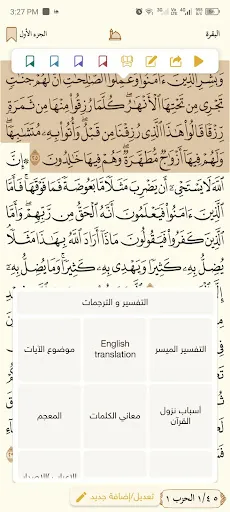 3:27 PM
البقرة
الجزء الأول
وَبَشِّرِ الَّذِينَ ءَامَنُوا وَعَمِلُوا الصَّالِحَاتِ أَنَّ لَهُمْ جَنَّاتٍ
تَجْرِي مِن تَحْتِهَا الْأَنْهَارُ كُلَّمَا رُزِقُوا مِنْهَا مِن ثَمَرَةٍ
رِّزْقًا قَالُوا هَٰذَا الَّذِي رُزِقْنَا مِن قَبْلُ وَأُتُوا بِهِ مُتَشَابِهًا
وَلَهُمْ فِيهَا أَزْوَاجٌ مُّطَهَّرَةٌ وَهُمْ فِيهَا خَالِدُونَ ٢٥ إِنَّ
اللَّهَ لَا يَسْتَحْيِي أَن يَضْرِبَ مَثَلًا مَّا بَعُوضَةً فَمَا فَوْقَهَا فَأَمَّا
الَّذِينَ ءَامَنُوا فَيَعْلَمُونَ أَنَّهُ الْحَقُّ مِن رَّبِّهِمْ وَأَمَّا
الَّذِينَ كَفَرُوا فَيَقُولُونَ مَاذَا أَرَادَ اللَّهُ بِهَٰذَا مَثَلًا
يُضِلُّ بِهِ كَثِيرًا وَيَهْدِي بِهِ كَثِيرًا وَمَا يُضِلُّ بِهِ
التفسير و الترجمات
التفسير الميسر
English translation
موضوع الآيات
أسباب نزول القرآن
معاني الكلمات
المعجم
تعديل/إضافة جديد
٤٥ / ١ الحزب ١